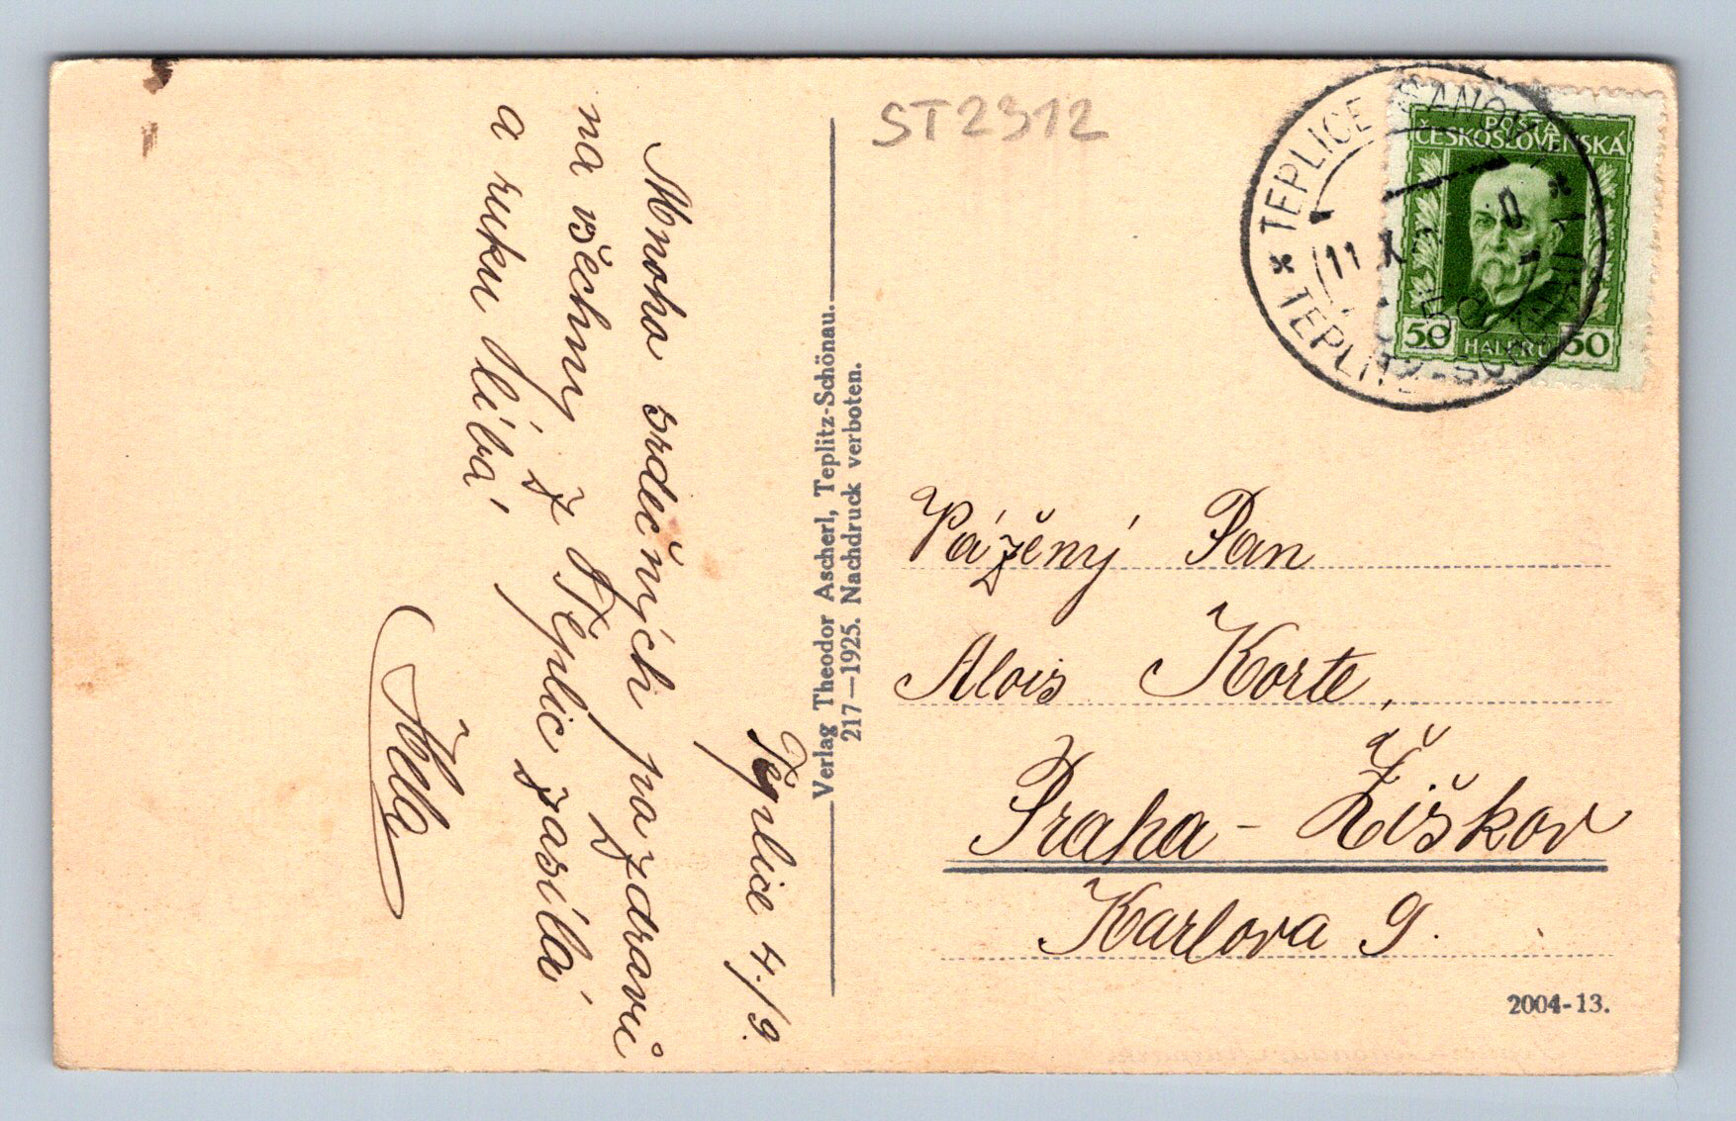 ST2312
TEPLICE ŠANOV
TEPLITZ-SCHÖNAU
11 X
POŠTA
ČESKOSLOVENSKÁ
50 HALÉŘŮ 50
Teplice 4./9.
Mnoho srdečných pozdravů
na všechny z Teplic zasílá
a ruku líbá
Verlag Theodor Ascherl, Teplitz-Schönau.
217—1925. Nachdruck verboten.
Vážený Pan
Alois Korte,
Praha - Žiškov
Karlova 9.
2004-13.